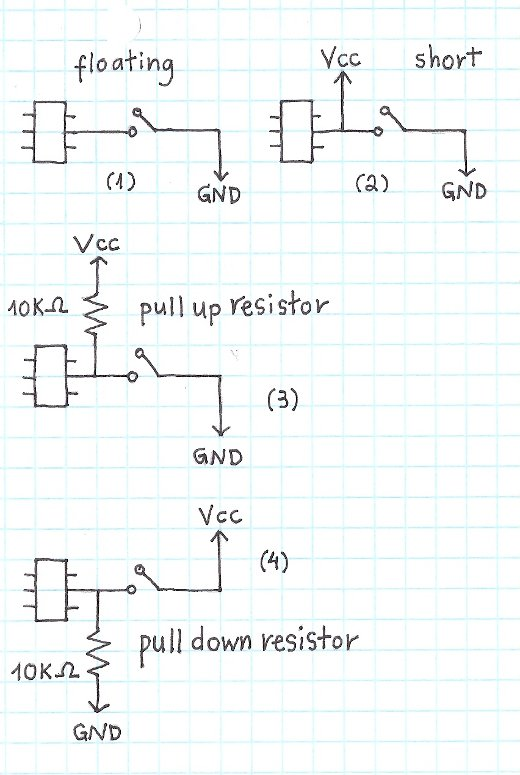 floating
(1)
GND
Vcc
short
(2)
GND
Vcc
10KΩ
pull up resistor
(3)
GND
Vcc
(4)
pull down resistor
10KΩ
GND